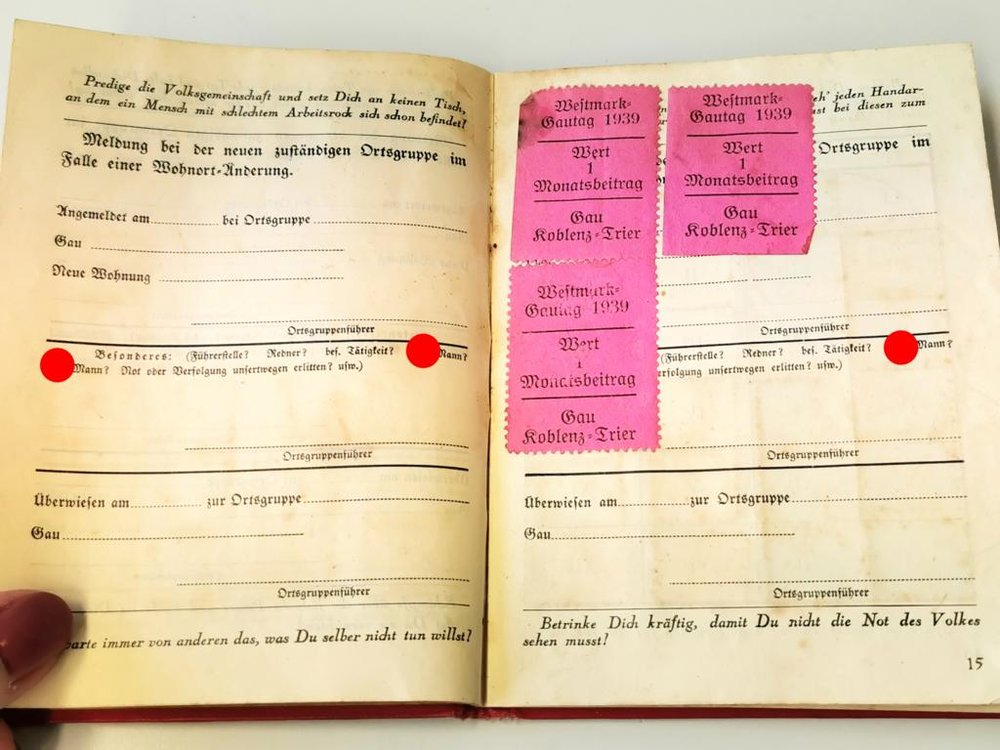 Predige die Volksgemeinschaft und setz Dich an keinen Tisch,
an dem ein Mensch mit schlechtem Arbeitsrock sich schon befindet?
Meldung bei der neuen zuständigen Ortsgruppe im
Falle einer Wohnort-Änderung.
Angemeldet am bei Ortsgruppe
Gau
Neue Wohnung
Ortsgruppenführer
Besonderes: (Führerstelle? Redner? bes. Tätigkeit? Mann?
Mann? Not oder Verfolgung unsertwegen erlitten? usw.)
Ortsgruppenführer
Überwiesen am zur Ortsgruppe
Gau
Ortsgruppenführer
immer von anderen das, was Du selber nicht tun willst?
jeden Handar-
bei diesen zum
Ortsgruppe im
Westmark-
Gautag 1939
Wert
1
Monatsbeitrag
Gau
Koblenz-Trier
Westmark-
Gautag 1939
Wert
1
Monatsbeitrag
Gau
Koblenz-Trier
Westmark-
Gautag 1939
Wert
1
Monatsbeitrag
Gau
Koblenz-Trier
Ortsgruppenführer
(Führerstelle? Redner? bes. Tätigkeit? Mann?
erlitten? usw.)
Ortsgruppenführer
Überwiesen am zur Ortsgruppe
Gau
Ortsgruppenführer
Betrinke Dich kräftig, damit Du nicht die Not des Volkes
sehen musst?
15